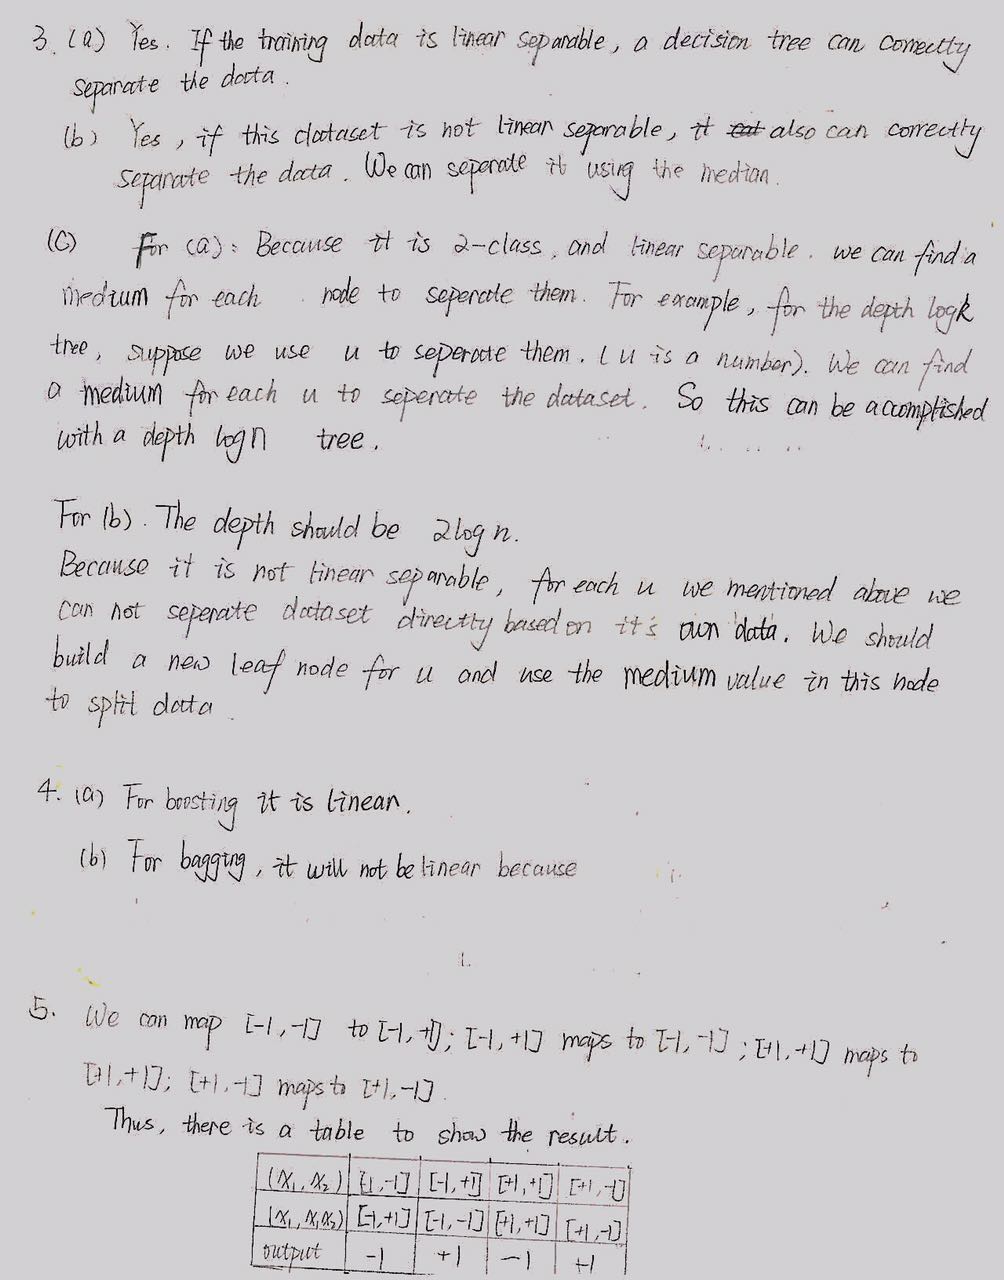 3. (a) Yes. If the training data is linear separable, a decision tree can correctly
separate the data.
(b) Yes, if this dataset is not linear separable, it also can correctly
separate the data. We can seperate it using the median.
(C) For (a): Because it is 2-class, and linear separable. we can find a
medium for each node to seperate them. For example, for the depth logk
tree, suppose we use u to seperate them. (u is a number). We can find
a medium for each u to seperate the dataset. So this can be accomplished
with a depth logn tree.
For (b). The depth should be 2logn.
Because it is not linear separable, for each u we mentioned above we
can not seperate dataset directly based on it's own data. We should
build a new leaf node for u and use the medium value in this node
to split data
4. (a) For boosting it is linear.
(b) For bagging, it will not be linear because
5. We can map [-1, -1] to [-1, +1]; [-1, +1] maps to [-1, -1]; [+1, +1] maps to
[+1, +1]; [+1, -1] maps to [+1, -1].
Thus, there is a table to show the result.
(x₁, x₂) [-1, -1] [-1, +1] [+1, +1] [+1, -1]
(x₁, x₁x₂) [-1, +1] [-1, -1] [+1, +1] [+1, -1]
output -1 +1 -1 +1